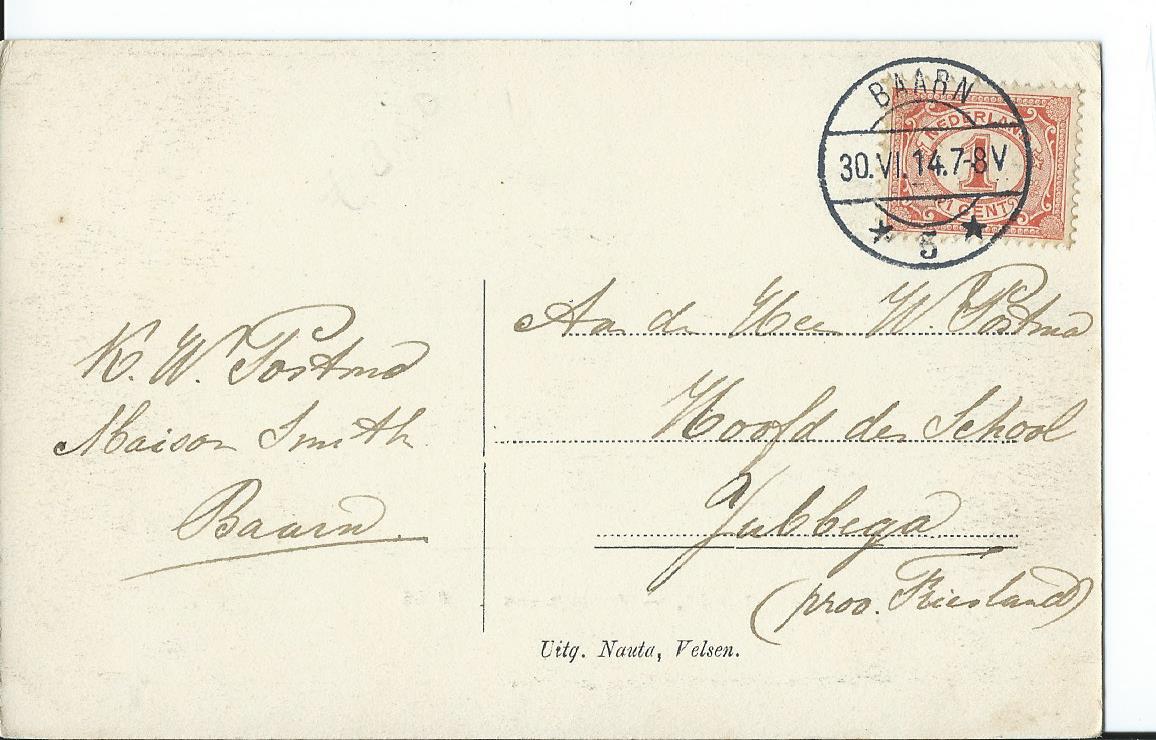 BAARN
30.VI.14.7-8V
5
NEDERLAND
1
1 CENT
K. W. Postma
Maison Smith
Baarn.
Aan den Heer W. Postma
Hoofd der School
Jubbega
(prov. Friesland)
Uitg. Nauta, Velsen.